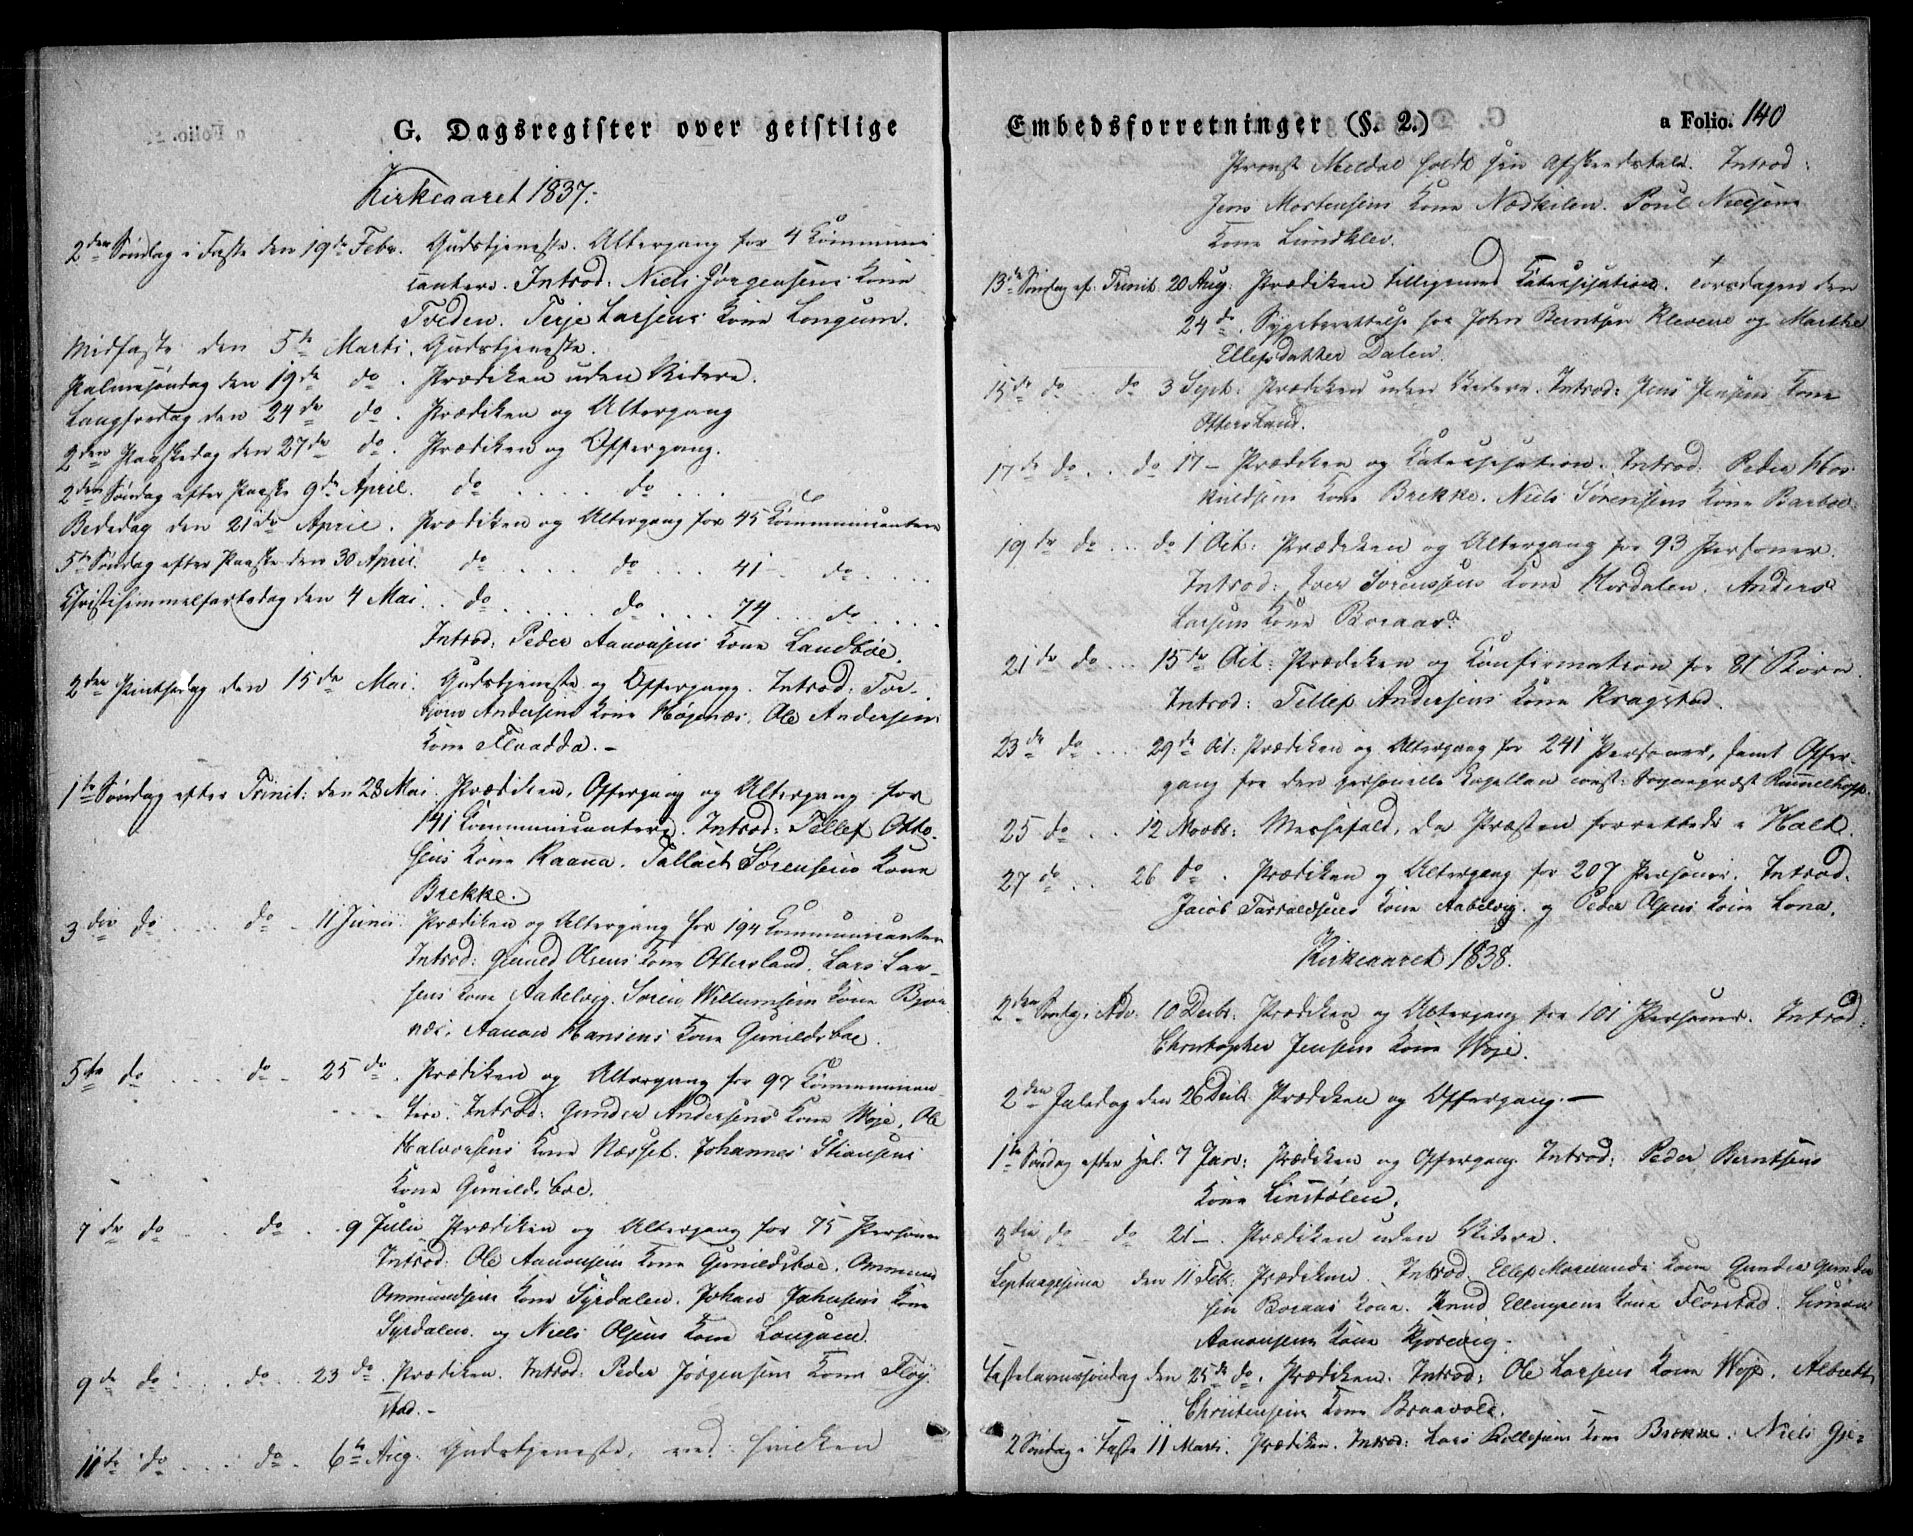 G. Dagsregister over geistlige
Kirkeaaret 1837.
2den Søndag i Faste den 19de Febr. Gudstjeneste. Altergang for 4 Communi-
cantere. Introd: Niels Jørgensens Kone
Tveden. Terje Larsens Kone Longum.
Midfaste den 5te Marts. Gudstjeneste.
Palmesøndag den 19de do. Prædiken uden Videre.
Langfredag den 24de do. Prædiken og Altergang
2den Paaskedag den 27de do. Prædiken og Offergang.
2den Søndag efter Paaske 9de April. do .... do ...
Bededag den 21de April. Prædiken og Altergang for 45 Communicantere
5te Søndag efter Paaske den 30 April. do .... do .... 41 - do ....
Christihimmelfartsdag den 4 Mai. do .... do .... 74 ... do ....
Introd: Peder Aanonsens Kone Landbøe.
2den Pintsedag den 15de Mai. Gudstjeneste og Offergang. Introd: Tor-
bjørn Andersens Kone Høgenæs. Ole Andersens
Kone Fladda. -
1te Søndag efter Trinit: den 28 Mai. Prædiken, Offergang og Altergang for
141 Communicantere. Introd: Tellef Otto-
sens Kone Raanna. Tallach Sørensens Kone
Brekke.
3die do ... do - 11 Junii. Prædiken og Altergang for 194 Communicanter
Introd: Gunild Olsens Kone Ottersland. Lars Lar-
sens Kone Aabelvig. Søren Willumsens Kone Bjor-
næs. Aanon Hansens Kone Gunildsboe.
5te do .... do - 25 do. Prædiken og Altergang for 97 Communican-
tere. Introd: Gunder Andersens Kone Woje. Ole
Halvorsens Kone Næsset. Johannes Stiansens
Kone Gunildsboe.
7de do - . do . 9 Julii Prædiken og Altergang for 75 Personer
Introd: Ole Aanonsens Kone Gunildsboe. Ommund
Ommundsens Kone Syrdalen. Johan Johnsens Kone
Syrdalen. og Niels Olsens Kone Longum.
9de do .... do ... 23 do. Prædiken. Introd: Peder Jørgensens Kone Fløi-
stad. -
11te do .... do . 6te Aug. Gudstjeneste, ved hvilken
Embedsforretninger (§. 2.)
a Folio. 140
Provst Meldal holdt sin Afskedstale. Introd:
Jens Mortensens Kone Nedkilen. Poul Nielsens
Kone Lundklev.
13de Søndag ef: Trinit. 20 Aug: Prædiken tilligemed Catechisation. Torsdagen den
24de. Sygeberettelse for John Berntsen Klevene og Marthe
Ellefsdatter Dalen.
15de do .. do 3 Sept: Prædiken uden Videre. Introd: Jens Jensens Kone
Ottersland.
17de do .. do 17 - Prædiken og Catechisation. Introd: Peder Hos-
kuldsens Kone Brekke. Niels Sørensens Kone Barboe.
19de do ... do 1 Oct: Prædiken og Altergang for 93 Personer.
Introd: Iver Sørenssens Kone Mørdalen. Anders
Larsens Kone Boraas.
21de do ... 15de Oct: Prædiken og Confirmation for 81 Børn.
Introd: Tellef Andersens Kone Kragstad.
23de do .... 29de Oct: Prædiken og Altergang for 241 Personer, samt Offer-
gang for den personelle Capellan const: Sognepræst Rummelhoff.
25 do .. . 12 Novbr: Messefald, da Præsten forrettede i Holt.
27 do .. . 26 do . Prædiken og Altergang for 207 Personer. Introd.
Jacob Tarraldsens Kone Aabelvig. og Peder Olsens Kone Lona.
Kirkeaaret 1838.
2den Søndag i Adv. 10 Decbr: Prædiken og Altergang for 101 Personer. Introd:
Christopher Jensens Kone Woje.
2den Juledag den 26 Decbr. Prædiken og Offergang. -
1te Søndag efter Hel. 7 Jan: Prædiken og Offergang Introd: Peder Berntsens
Kone Linstølen.
3die do - do 21 -. Prædiken uden Videre.
Septuagesima den 11 Feb: Prædiken. Introd: Ellef Moeelunds Kone Gunder Gunder-
sen Boraas Kone. Knud Ellingsens Kone Flovstad. Simon
Aanonsens Kone Kjorevig.
Fastelavnssøndag den 25de do. Prædiken. Introd: Ole Larsens Kone Woje. Albrekt
Christensens Kone Braavold.
2 Søndag i Faste 11 Marts. Prædiken. Introd: Lars Rollefsens Kone Brekke. Niels Gje-